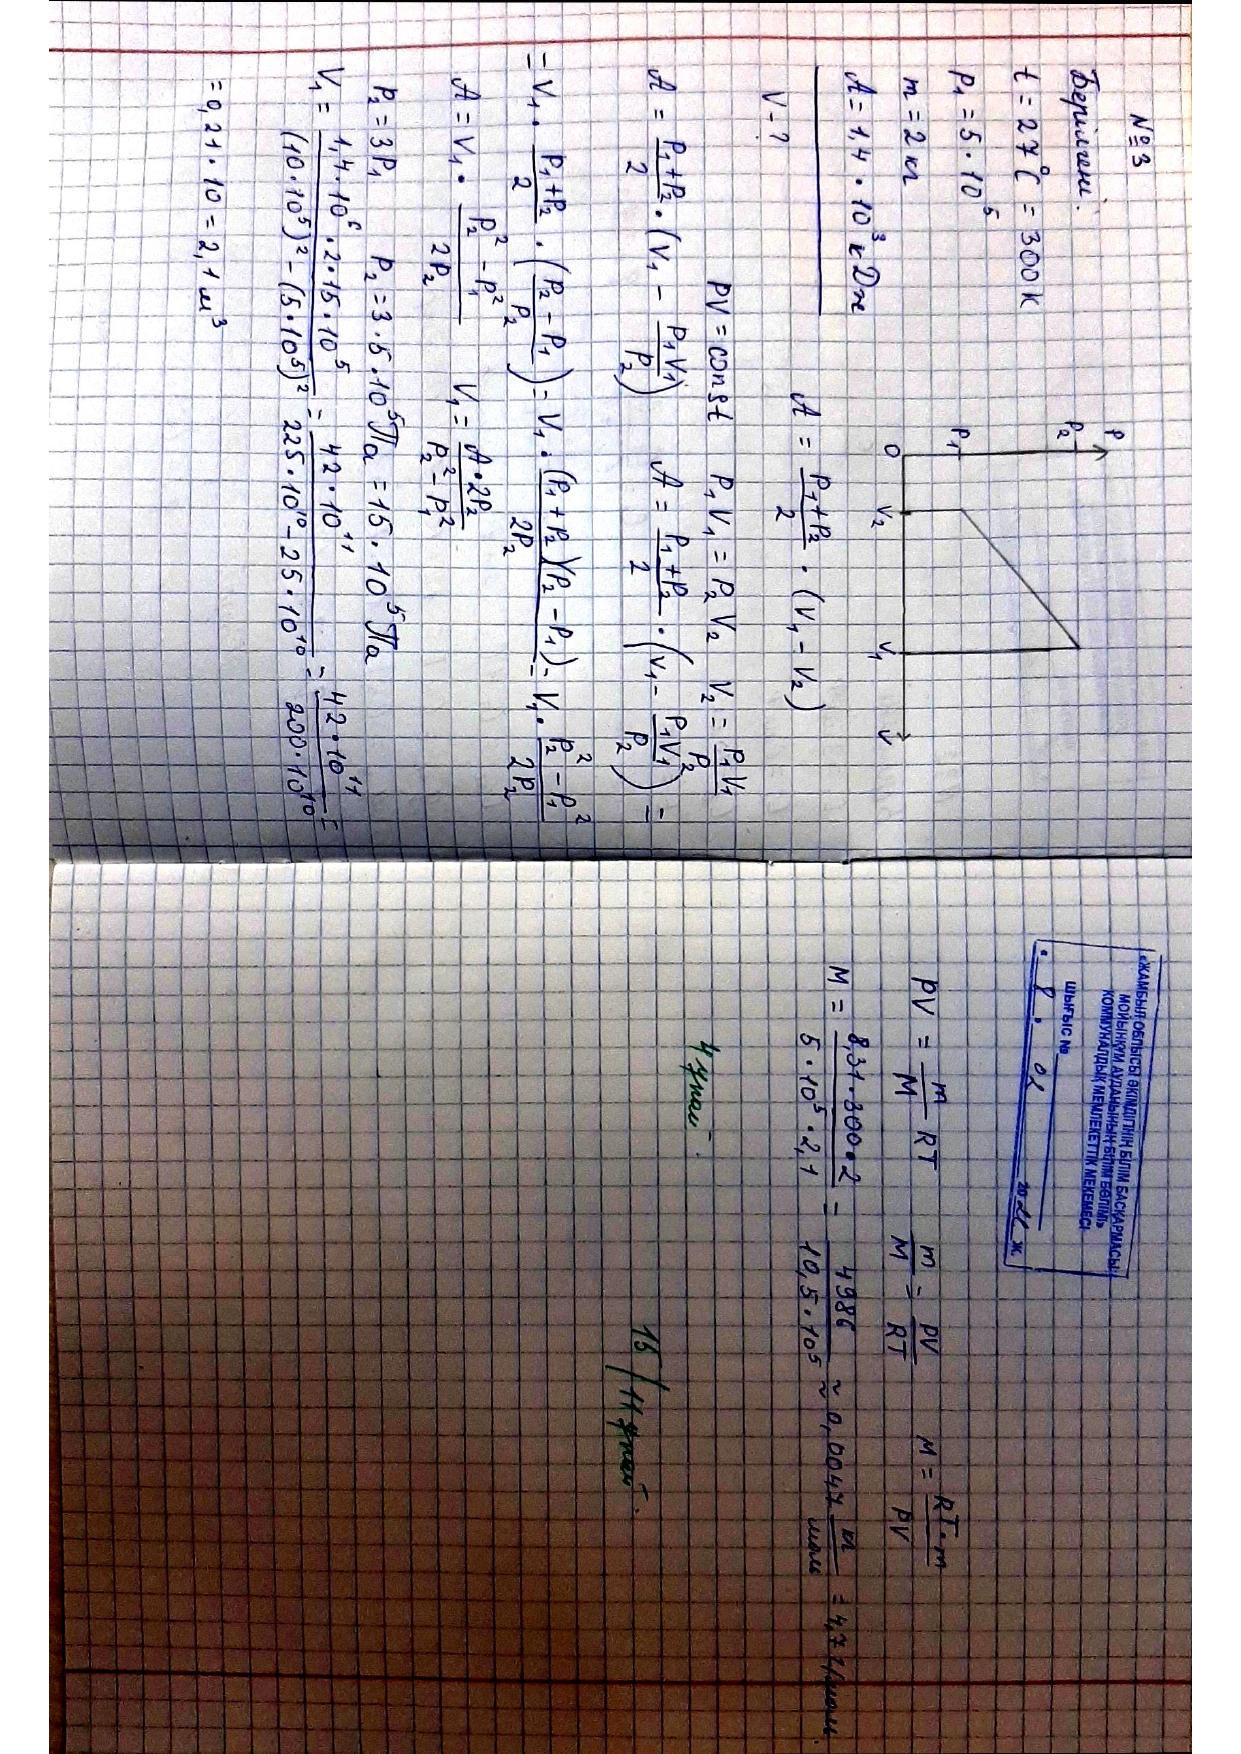 №3
Берілгені:
t = 27°C = 300K
P₁ = 5 · 10⁵
m = 2 кг
A = 1,4 · 10³ кДж
V - ?
P
P₂
P₁
O
V₂
V₁
V
A = (P₁+P₂)/2 · (V₁ - V₂)
PV = const P₁V₁ = P₂V₂ V₂ = P₁V₁/P₂
A = (P₁+P₂)/2 · (V₁ - P₁V₁/P₂) A = (P₁+P₂)/2 · (V₁ - P₁V₁/P₂) =
= V₁ · (P₁+P₂)/2 · (P₂ - P₁/P₂) = V₁ · (P₁+P₂)(P₂ - P₁)/2P₂ = V₁ · P₂² - P₁²/2P₂
A = V₁ · P₂² - P₁²/2P₂ V₁ = A · 2P₂/P₂² - P₁²
P₂ = 3P₁ P₂ = 3 · 5 · 10⁵ Па = 15 · 10⁵ Па
V₁ = 1,4 · 10⁶ · 2 · 15 · 10⁵/(10 · 10⁵)² - (5 · 10⁵)² = 42 · 10¹¹/225 · 10¹⁰ - 25 · 10¹⁰ = 42 · 10¹¹/200 · 10¹⁰ =
= 0,21 · 10 = 2,1 м³
«ЖАМБЫЛ ОБЛЫСЫ ӘКІМДІГІНІҢ БІЛІМ БАСҚАРМАСЫ
МОЙЫНҚҰМ АУДАНЫНЫҢ БІЛІМ БӨЛІМІ»
КОММУНАЛДЫҚ МЕМЛЕКЕТТІК МЕКЕМЕСІ
ШЫҒЫС №
8. 02 ж.
PV = m/M RT m/M = PV/RT M = RT·m/PV
M = 8,31 · 300 · 2/5 · 10⁵ · 2,1 = 4986/10,5 · 10⁵ ≈ 0,0047 кг/моль = 4,7 г/моль
4 ұпай.
15/11 ұпай.